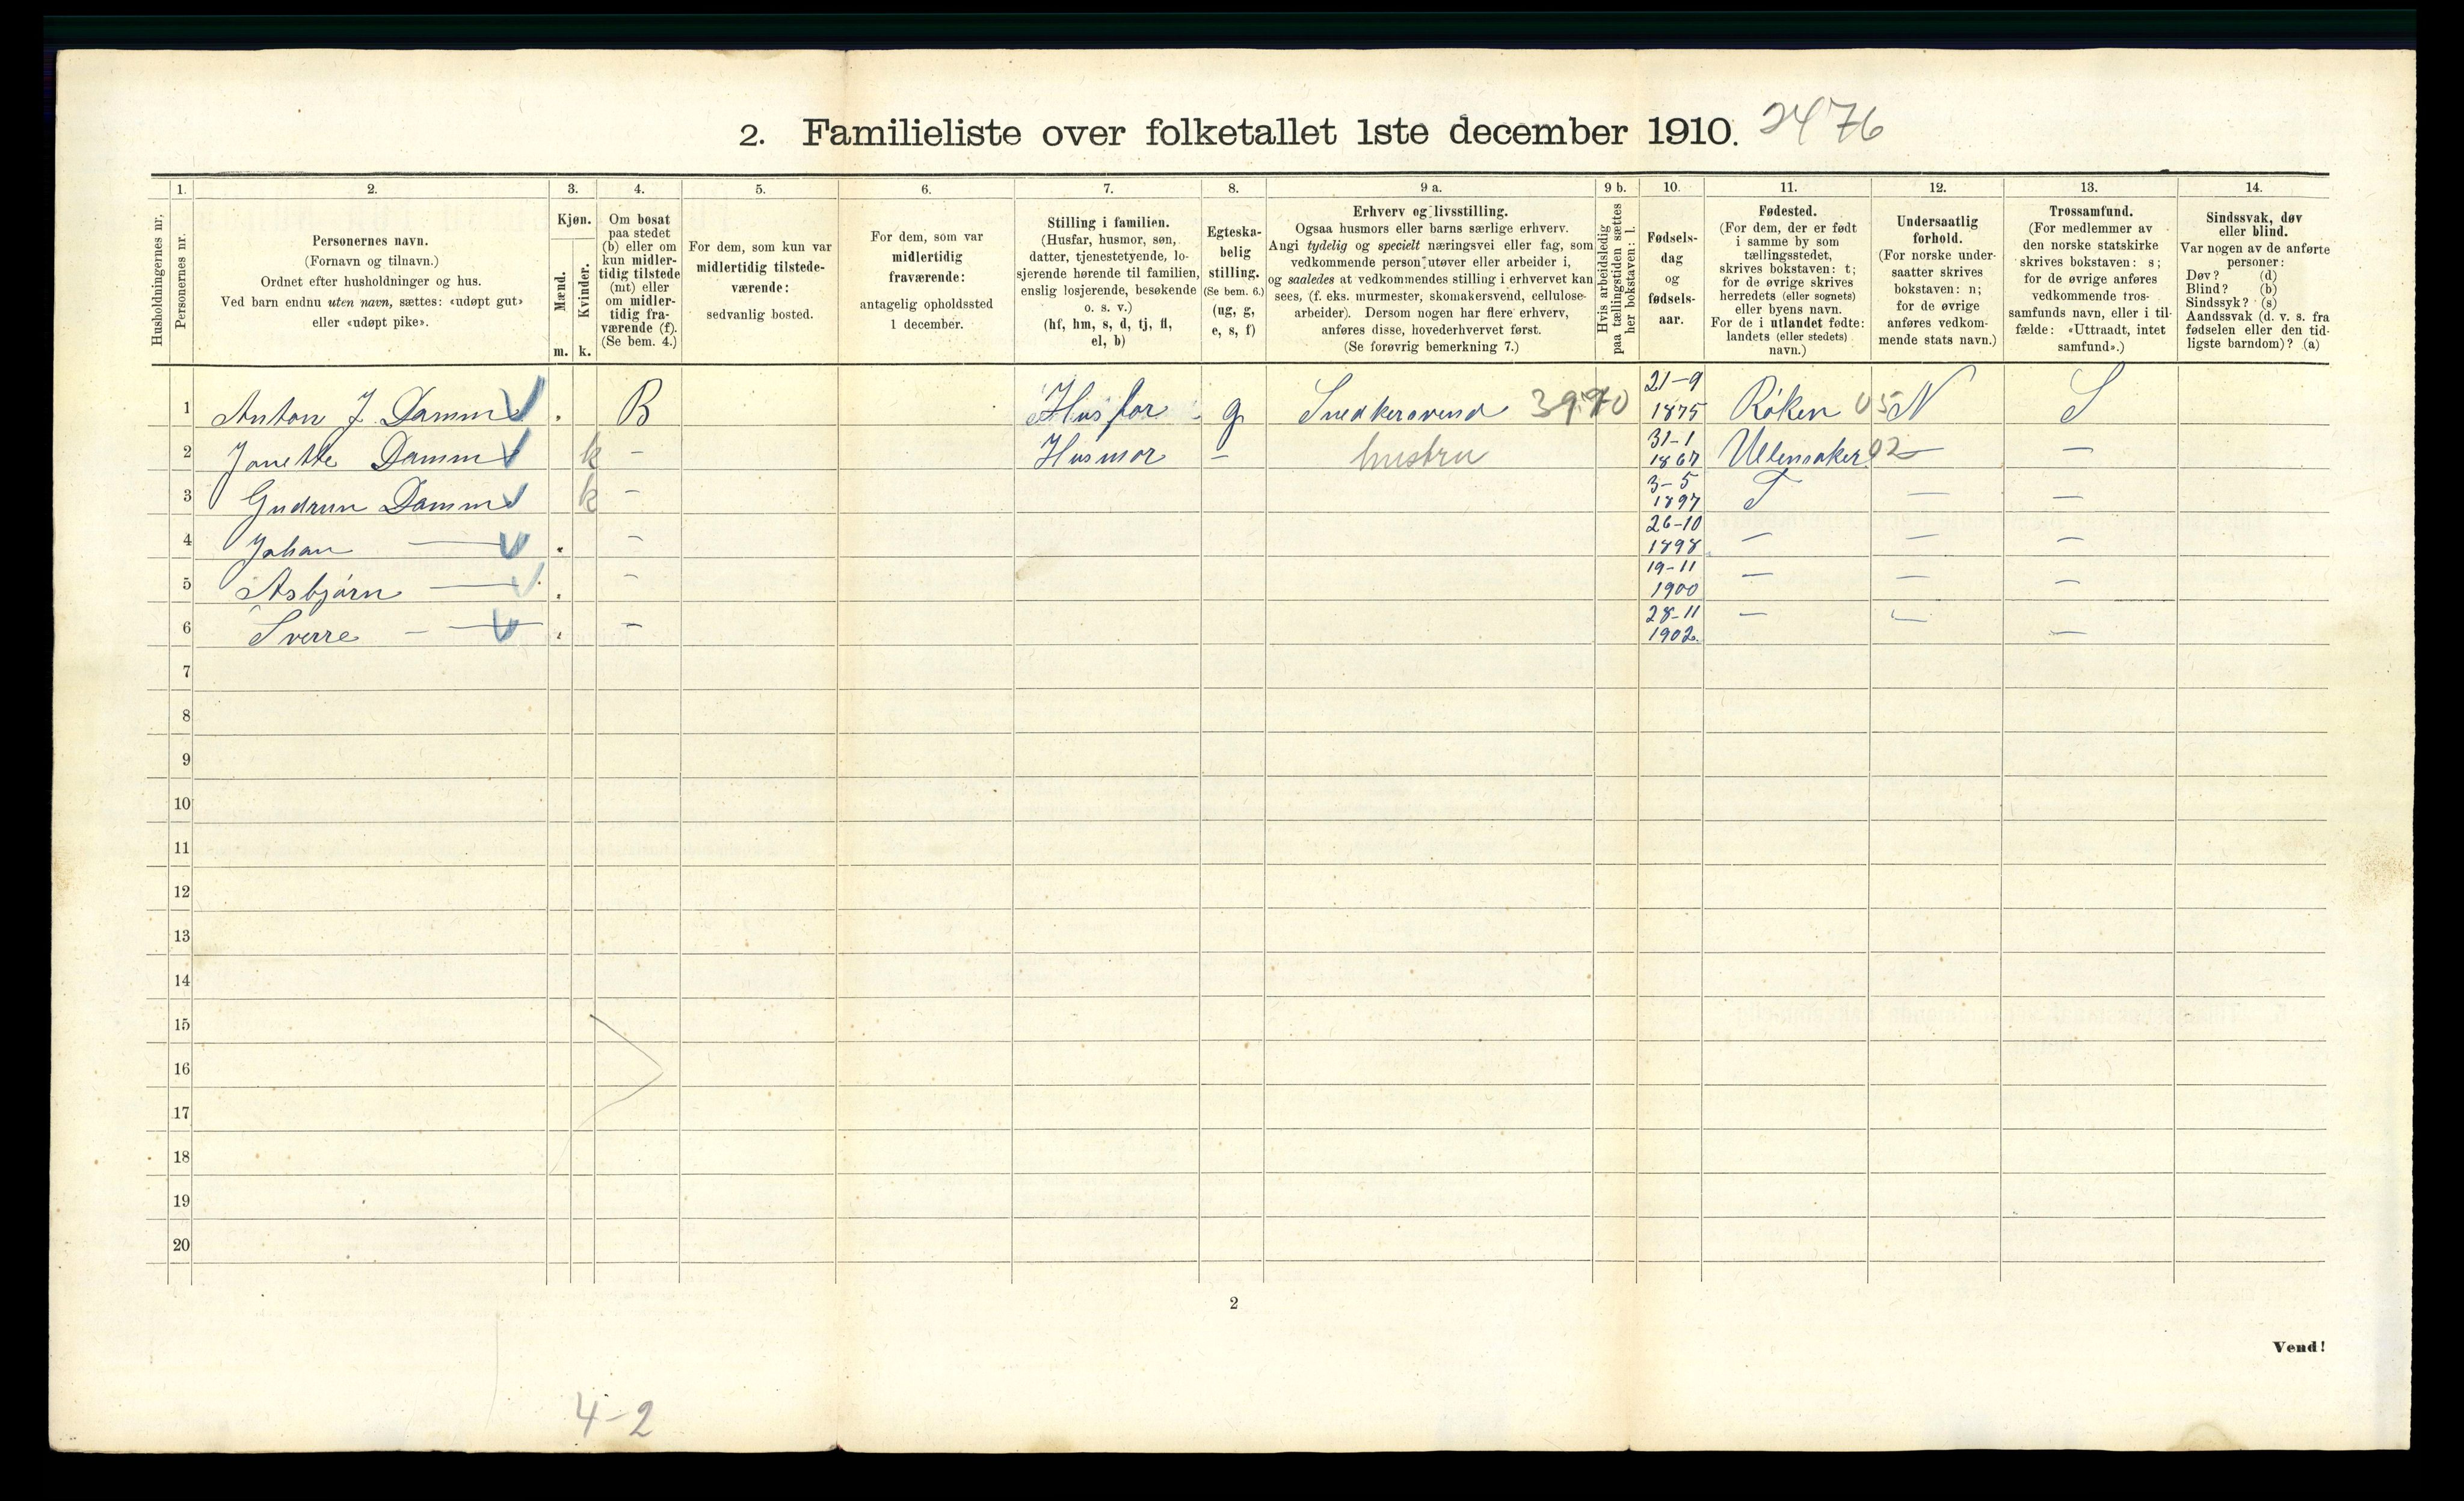 2. Familieliste over folketallet 1ste december 1910. 2476
1. 2. 3. 4. 5. 6. 7. 8. 9 a. 9 b. 10. 11. 12. 13. 14.
Husholdningernes nr.
Personernes nr.
Personernes navn.
(Fornavn og tilnavn.)
Ordnet efter husholdninger og hus.
Ved barn endnu uten navn, sættes: «udøpt gut»
eller «udøpt pike».
Kjøn.
Mænd.
Kvinder.
m. k.
Om bosat
paa stedet
(b) eller om
kun midler-
tidig tilstede
(mt) eller
om midler-
tidig fra-
værende (f).
(Se bem. 4.)
For dem, som kun var
midlertidig tilstede-
værende:
sedvanlig bosted.
For dem, som var
midlertidig
fraværende:
antagelig opholdssted
1 december.
Stilling i familien.
(Husfar, husmor, søn,
datter, tjenestetyende, lo-
sjerende hørende til familien,
enslig losjerende, besøkende
o. s. v.)
(hf, hm, s, d, tj, fl,
el, b)
Egteska-
belig
stilling.
(Se bem. 6.)
(ug, g,
e, s, f)
Erhverv og livsstilling.
Ogsaa husmors eller barns særlige erhverv.
Angi tydelig og specielt næringsvei eller fag, som
vedkommende person utøver eller arbeider i,
og saaledes at vedkommendes stilling i erhvervet kan
sees, (f. eks. murmester, skomakersvend, cellulose-
arbeider). Dersom nogen har flere erhverv,
anføres disse, hovederhvervet først.
(Se forøvrig bemerkning 7.)
Hvis arbeidsledig
paa tællingstiden sættes
her bokstaven: l.
Fødsels-
dag
og
fødsels-
aar.
Fødested.
(For dem, der er født
i samme by som
tællingsstedet,
skrives bokstaven: t;
for de øvrige skrives
herredets (eller sognets)
eller byens navn.
For de i utlandet fødte:
landets (eller stedets)
navn.)
Undersaatlig
forhold.
(For norske under-
saatter skrives
bokstaven: n;
for de øvrige
anføres vedkom-
mende stats navn.)
Trossamfund.
(For medlemmer av
den norske statskirke
skrives bokstaven: s;
for de øvrige anføres
vedkommende tros-
samfunds navn, eller i til-
fælde: «Uttraadt, intet
samfund».)
Sindssvak, døv
eller blind.
Var nogen av de anførte
personer:
Døv? (d)
Blind? (b)
Sindssyk? (s)
Aandssvak (d. v. s. fra
fødselen eller den tid-
ligste barndom)? (a)
1 Anton J. Damm . B Husfar g Snedkersvend 21-9 1875 Røken 05 N S
2 Janette Damm k - Husmor - hustru 31-1 1867 Ullensaker 02 - -
3 Gudrun Damm k - 3-5 1897 T - -
4 Johan — . - 26-10 1898 - - -
5 Asbjørn — . - 19-11 1900 - - -
6 Sverre — . - 28-11 1902. - - -
7
8
9
10
11
12
13
14
15
16
17
18
19
20
2
Vend!
4-2